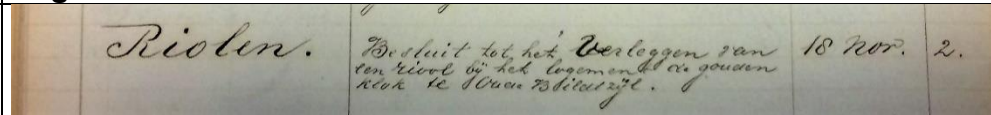 Riolen. Besluit tot het Verleggen van 18 Nov. 2.
een riool bij het logement de gouden
klok te Oude Bildtzijl.